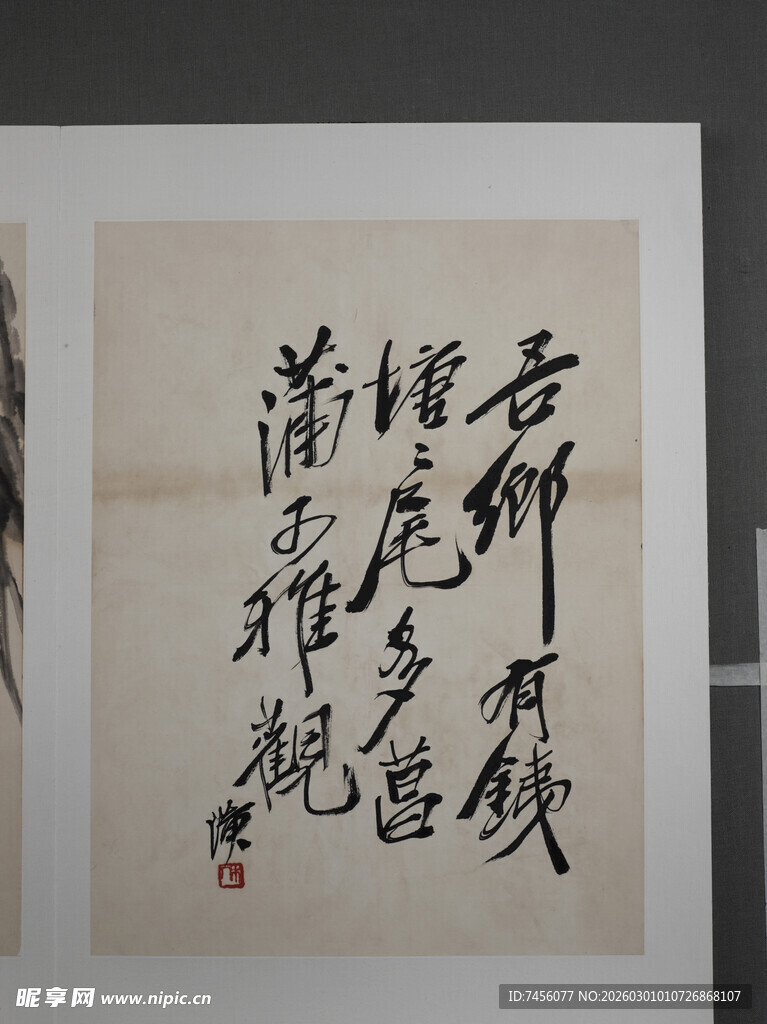 吾鄉有銕
塘〻尾多菖
蒲子雅觀
璜
木人
昵享网 www.nipic.cn
ID:7456077 NO:20260301010726868107